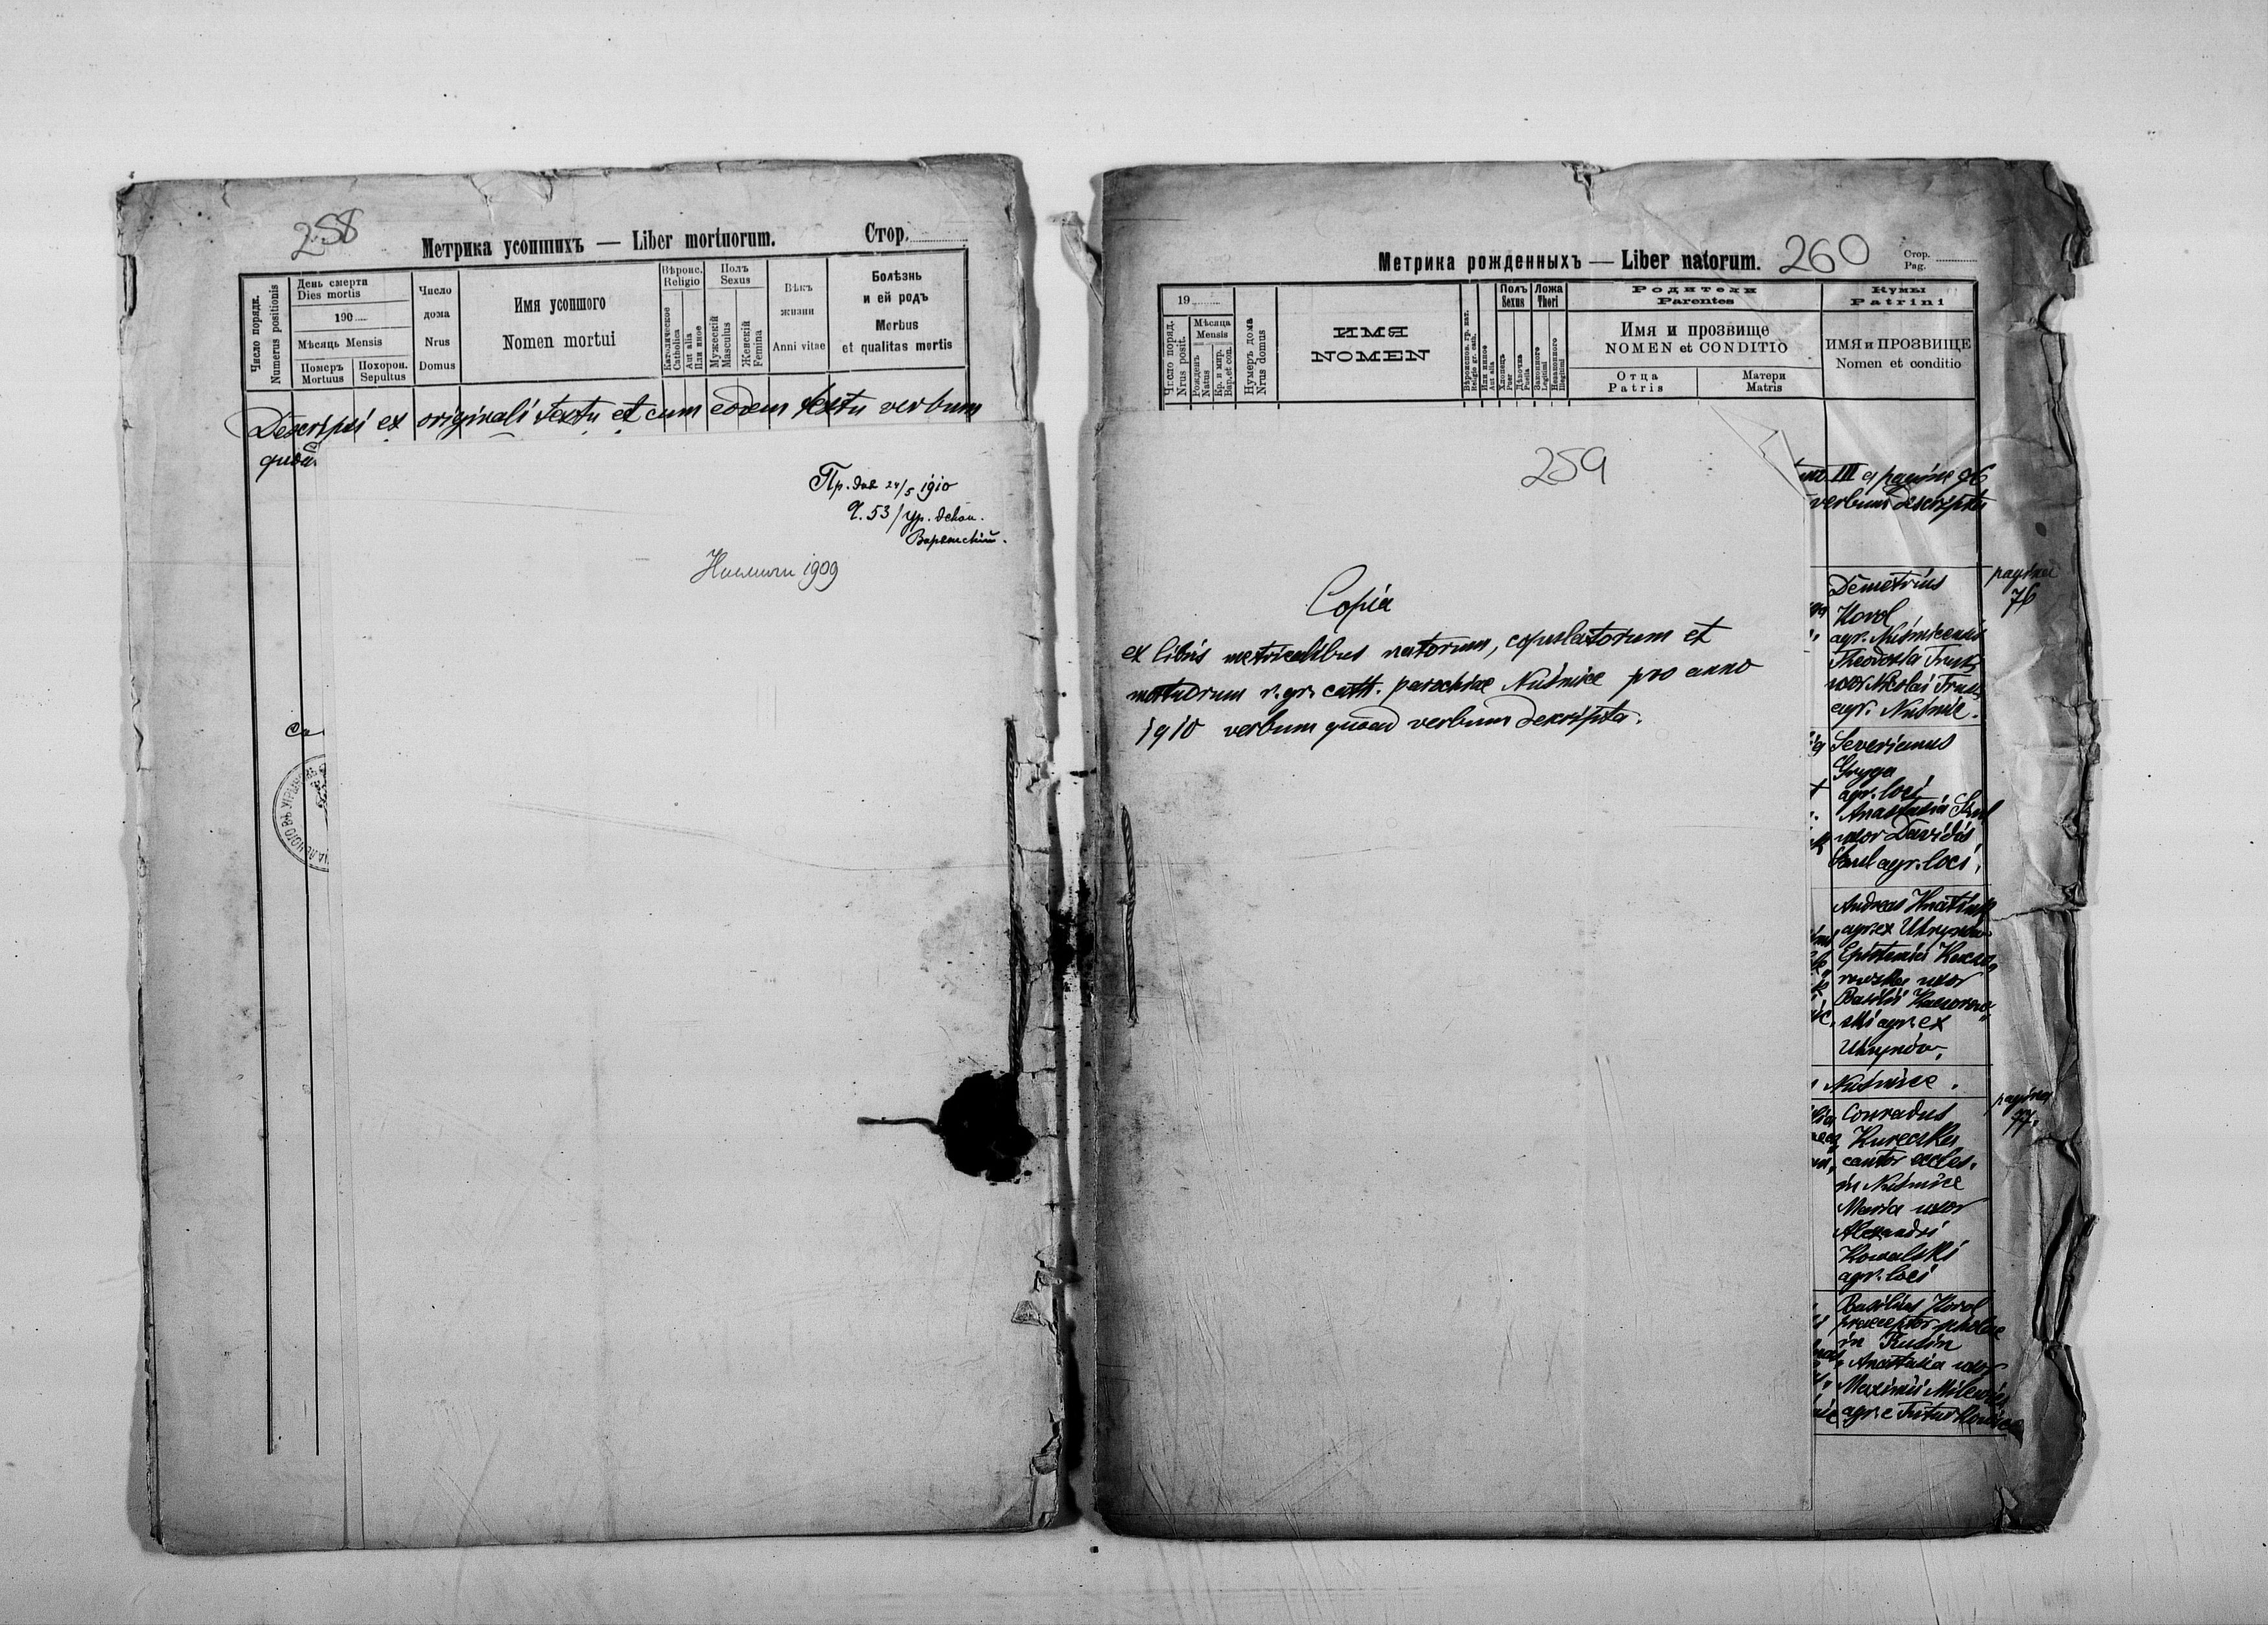 258
Метрика усопшихъ — Liber mortuorum.
Стор.
Число порядк.
Numerus positionis
День смерти
Dies mortis
190
Мѣсяць Mensis
Померъ
Mortuus
Похорон.
Sepultus
Число
дома
Nrus
Domus
Имя усопшого
Nomen mortui
Вѣроис.
Religio
Католическое
Catholica
Aut alia
Или иное
Полъ
Sexus
Мужескій
Masculus
Женскій
Femina
Вѣкъ
жизни
Anni vitae
Болѣзнь
и ей родъ
Morbus
et qualitas mortis
Descripsi ex originali textu et cum eodem textu verbum
quoad
Пр. дня 24/5 1910
Ч. 53/ Ур. декан.
1909
260
Метрика рожденныхъ — Liber natorum.
Стор.
Pag.
19
Число поряд.
Nrus posit.
Мѣсяца
Mensis
Рожденъ
Natus
Кр. и мир.
Bap. et con.
Нумеръ дома
Nrus domus
ИМЯ
NOMEN
Вѣроиспов. гр. кат.
Religio gr. cath.
Или инное
Aut alia
Полъ
Sexus
Хлопець
Puer
Дѣвочка
Puella
Ложа
Thori
Законного
Legitimi
Незаконного
Illegitimi
Родители
Parentes
Имя и прозвище
NOMEN et CONDITIO
Отца
Patris
Матери
Matris
Кумы
Patrini
ИМЯ и ПРОЗВИЩЕ
Nomen et conditio
259
Copia
ex libris metricalibus natorum, copulatorum et
mortuorum r. gr. cath. parochiae Nuśmice pro anno
1910 verbum quoad verbum descripta.
III a pagina 76
verbum descripta
pagina
76
Demetrius
Korol
agr. Nuśmicensis
Theodosia Trusz
uxor Nicolai Trusz
agr. Nuśmic.
Severianus
Gryga
agr. loci
Anastasia
uxor Davidis
agr. loci.
Andreas Hnatiuk
agr. ex Uhrynów
uxor
Basilii
ski agr. ex
Uhrynów.
Nuśmice.
pagina
77.
Conradus
Kureczka
cantor eccles.
in Nuśmice
Maria uxor
Alexandri
Kowalski
agr. loci
Basilius Korol
praeceptor scholae
in Rusin
Anastasia uxor
Maximi Milewicz